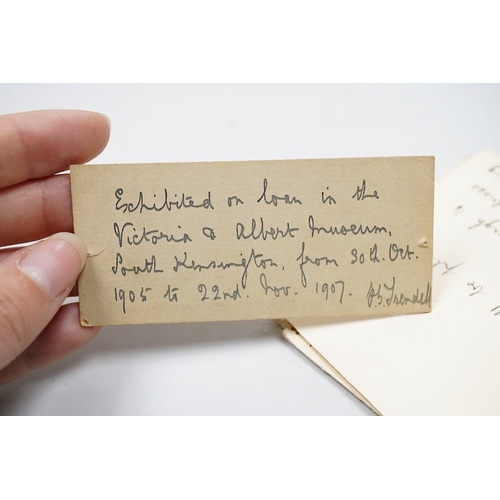 Exhibited on loan in the
Victoria & Albert Museum,
South Kensington, from 30th. Oct.
1905 to 22nd. Nov. 1907. Trendell